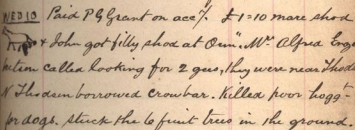 WED 10 Paid P G Grant on acc/. £1=10 mare shod
& John got filly shod at Mr. Alfred
called looking for 2 gees, they were near
N borrowed crowbar. Killed poor hogg
for dogs. stuck the 6 fruit trees in the ground.